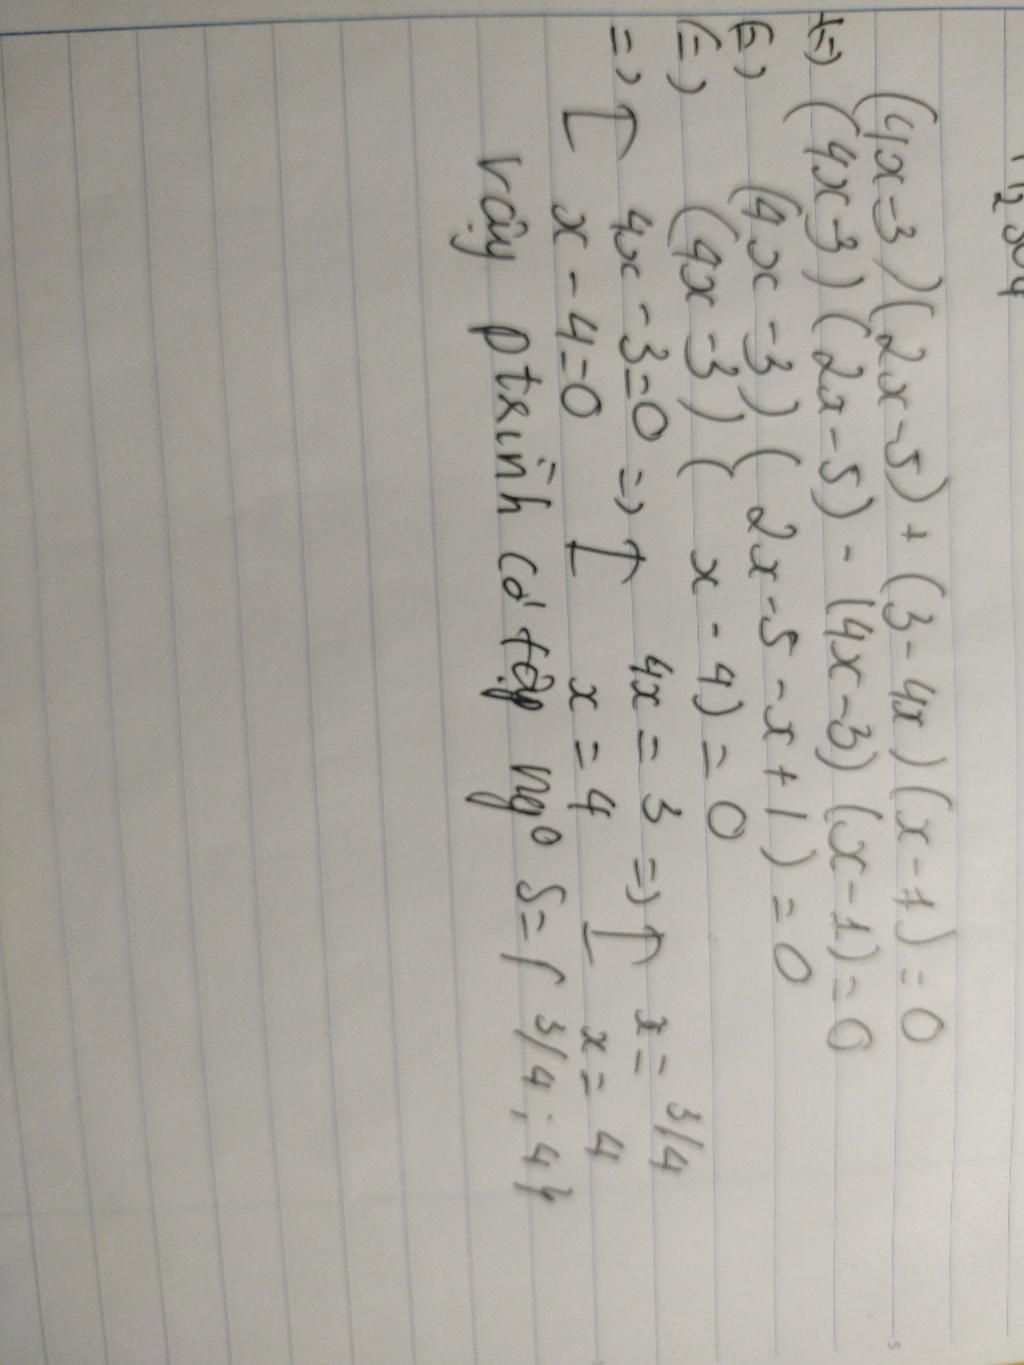 (4x-3)(2x-5)+(3-4x)(x-1)=0
(=) (4x-3)(2x-5)-(4x-3)(x-1)=0
(=) (4x-3)(2x-5-x+1)=0
(=) (4x-3)(x-4)=0
=> [ 4x-3=0 => [ 4x=3 => [ x=3/4
x-4=0 x=4 x=4
vậy ptrình có tập ngo S={3/4;4}